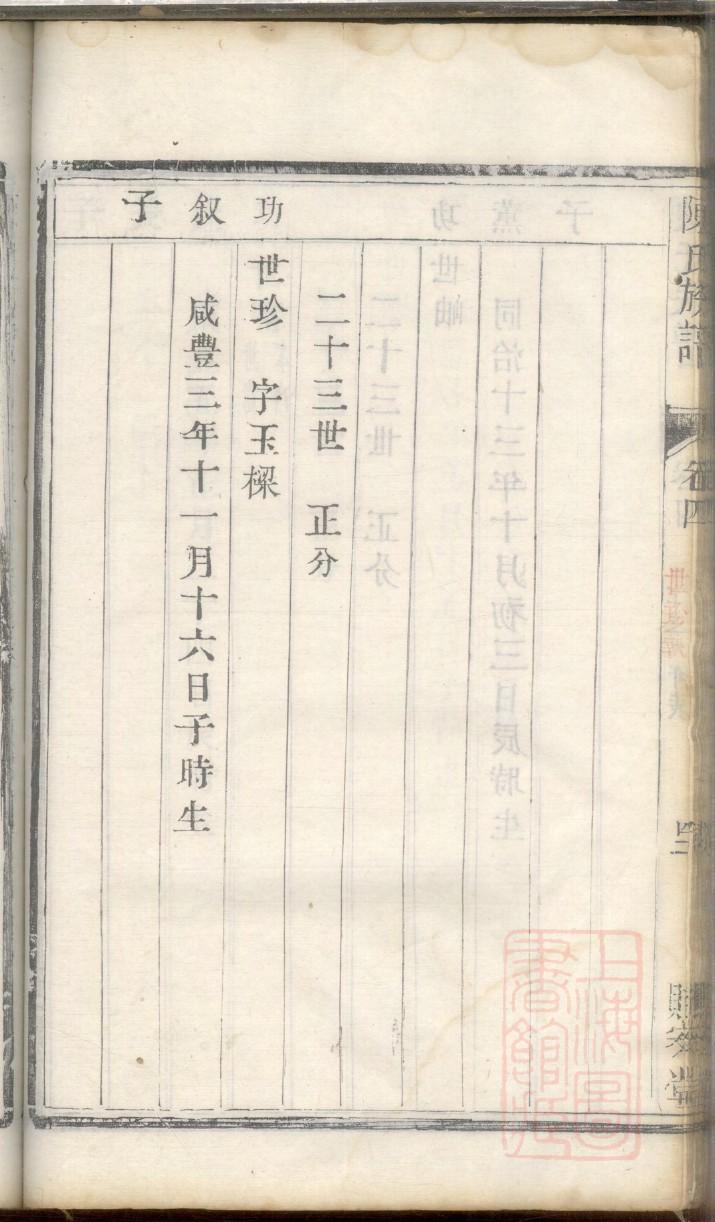 陳氏族譜
卷四
二十三世 正分
功叙子
世珍 字玉樑
咸豐三年十一月十六日子時生
上海圖書館藏